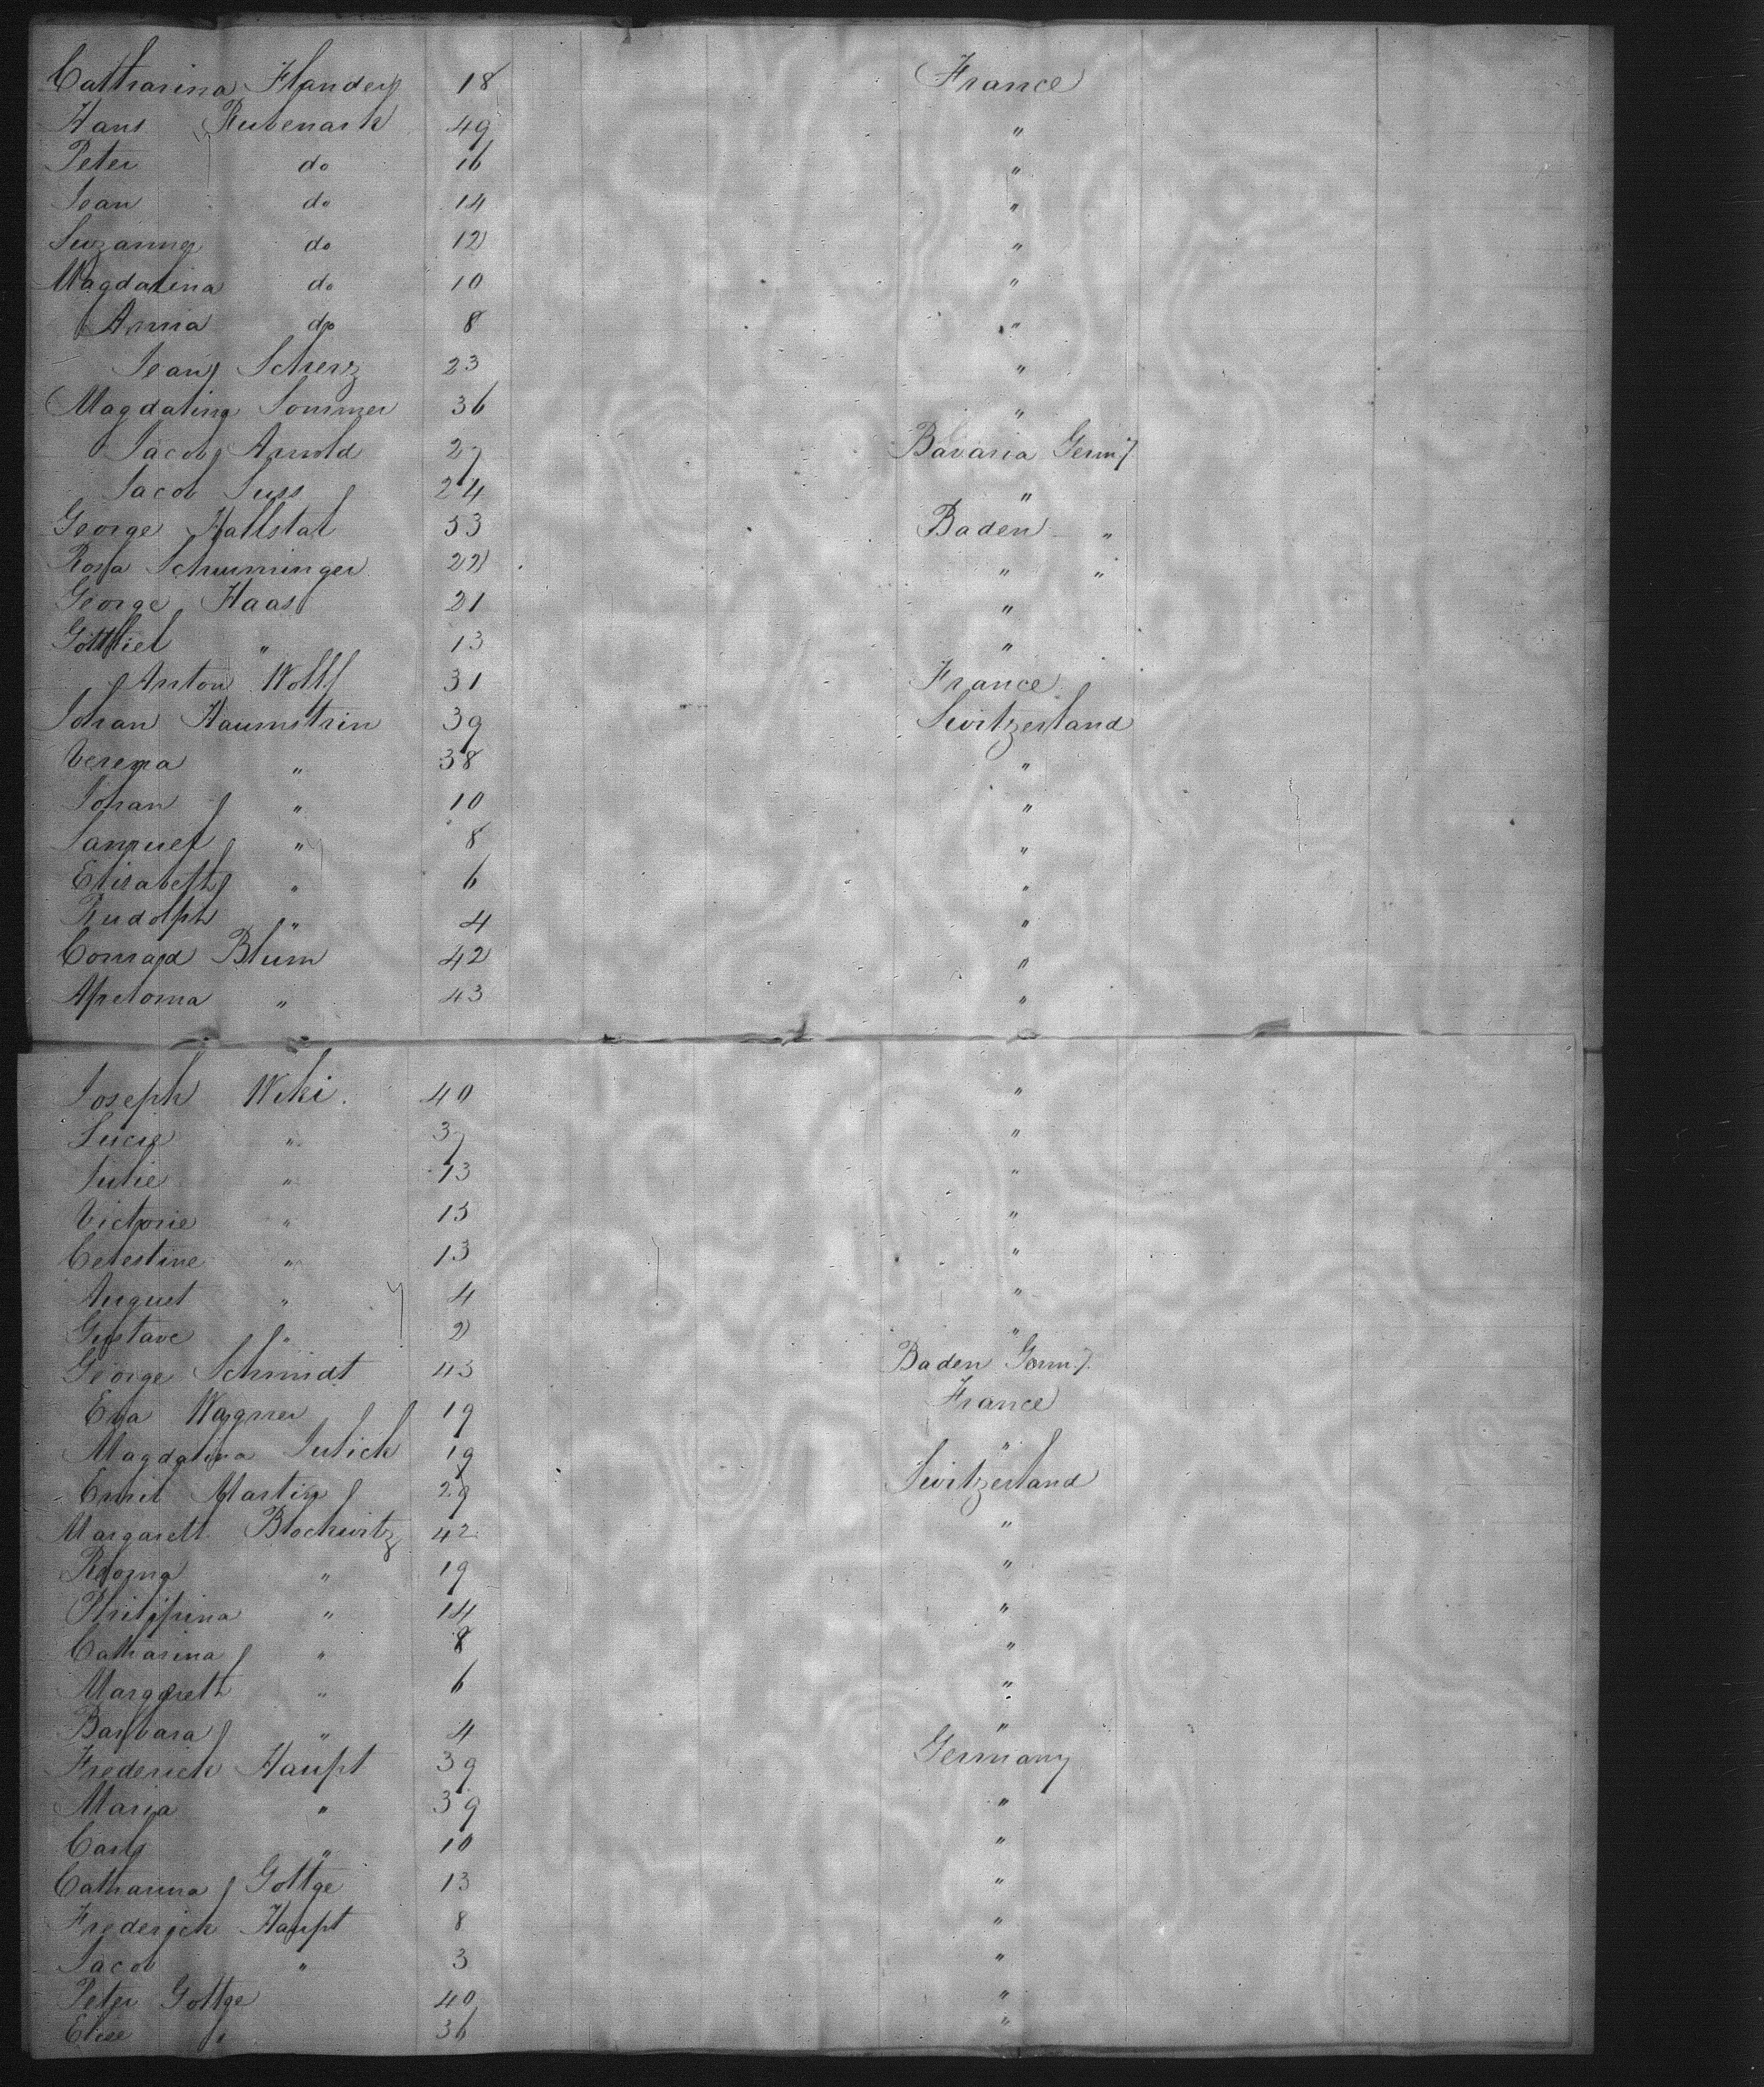 Catharina Flander 18 France
Hans Rubenack 49 "
Peter do 16 "
Jean do 14 "
Suzanne do 12 "
Magdalina do 10 "
Anna do 8 "
Jean Scherz 23 "
Magdalina Sommer 36 "
Jacob Arnold 27 Bavaria Germy
Jacob Suss 24 "
George Hallstal 53 Baden "
Rosa 22 " "
George Haas 21 "
Gottliel " 13 "
Anton Wolff 31 France
Johan Haumstrin 39 Switzerland
Verena " 38 "
Johan " 10 "
Samuel " 8 "
Elisabeth " 6 "
Rudolph " 4 "
Conrad Blum 42 "
Apelona " 43 "
Joseph Wiki. 40 "
Lucie " 37 "
Julie " 13 "
Victorie " 13 "
Celestine " 13 "
August " 4 "
Gustave " 2 "
George Schmidt 43 Baden Germy
Eva Wagner 19 France
Magdalina Julich 19 "
Emil Martin 29 Switzerland
Margarett Blochwitz 42 "
" 19 "
Philipina " 14 "
Catharina " 8 "
Margareth " 6 "
Barbara " 4 "
Frederick Haupt 39 Germany
Maria " 39 "
Carl " 10 "
Catharina Gottge 13 "
Frederick Haupt 8 "
Jacob " 3 "
Peter Gottge 40 "
Elise " 36 "